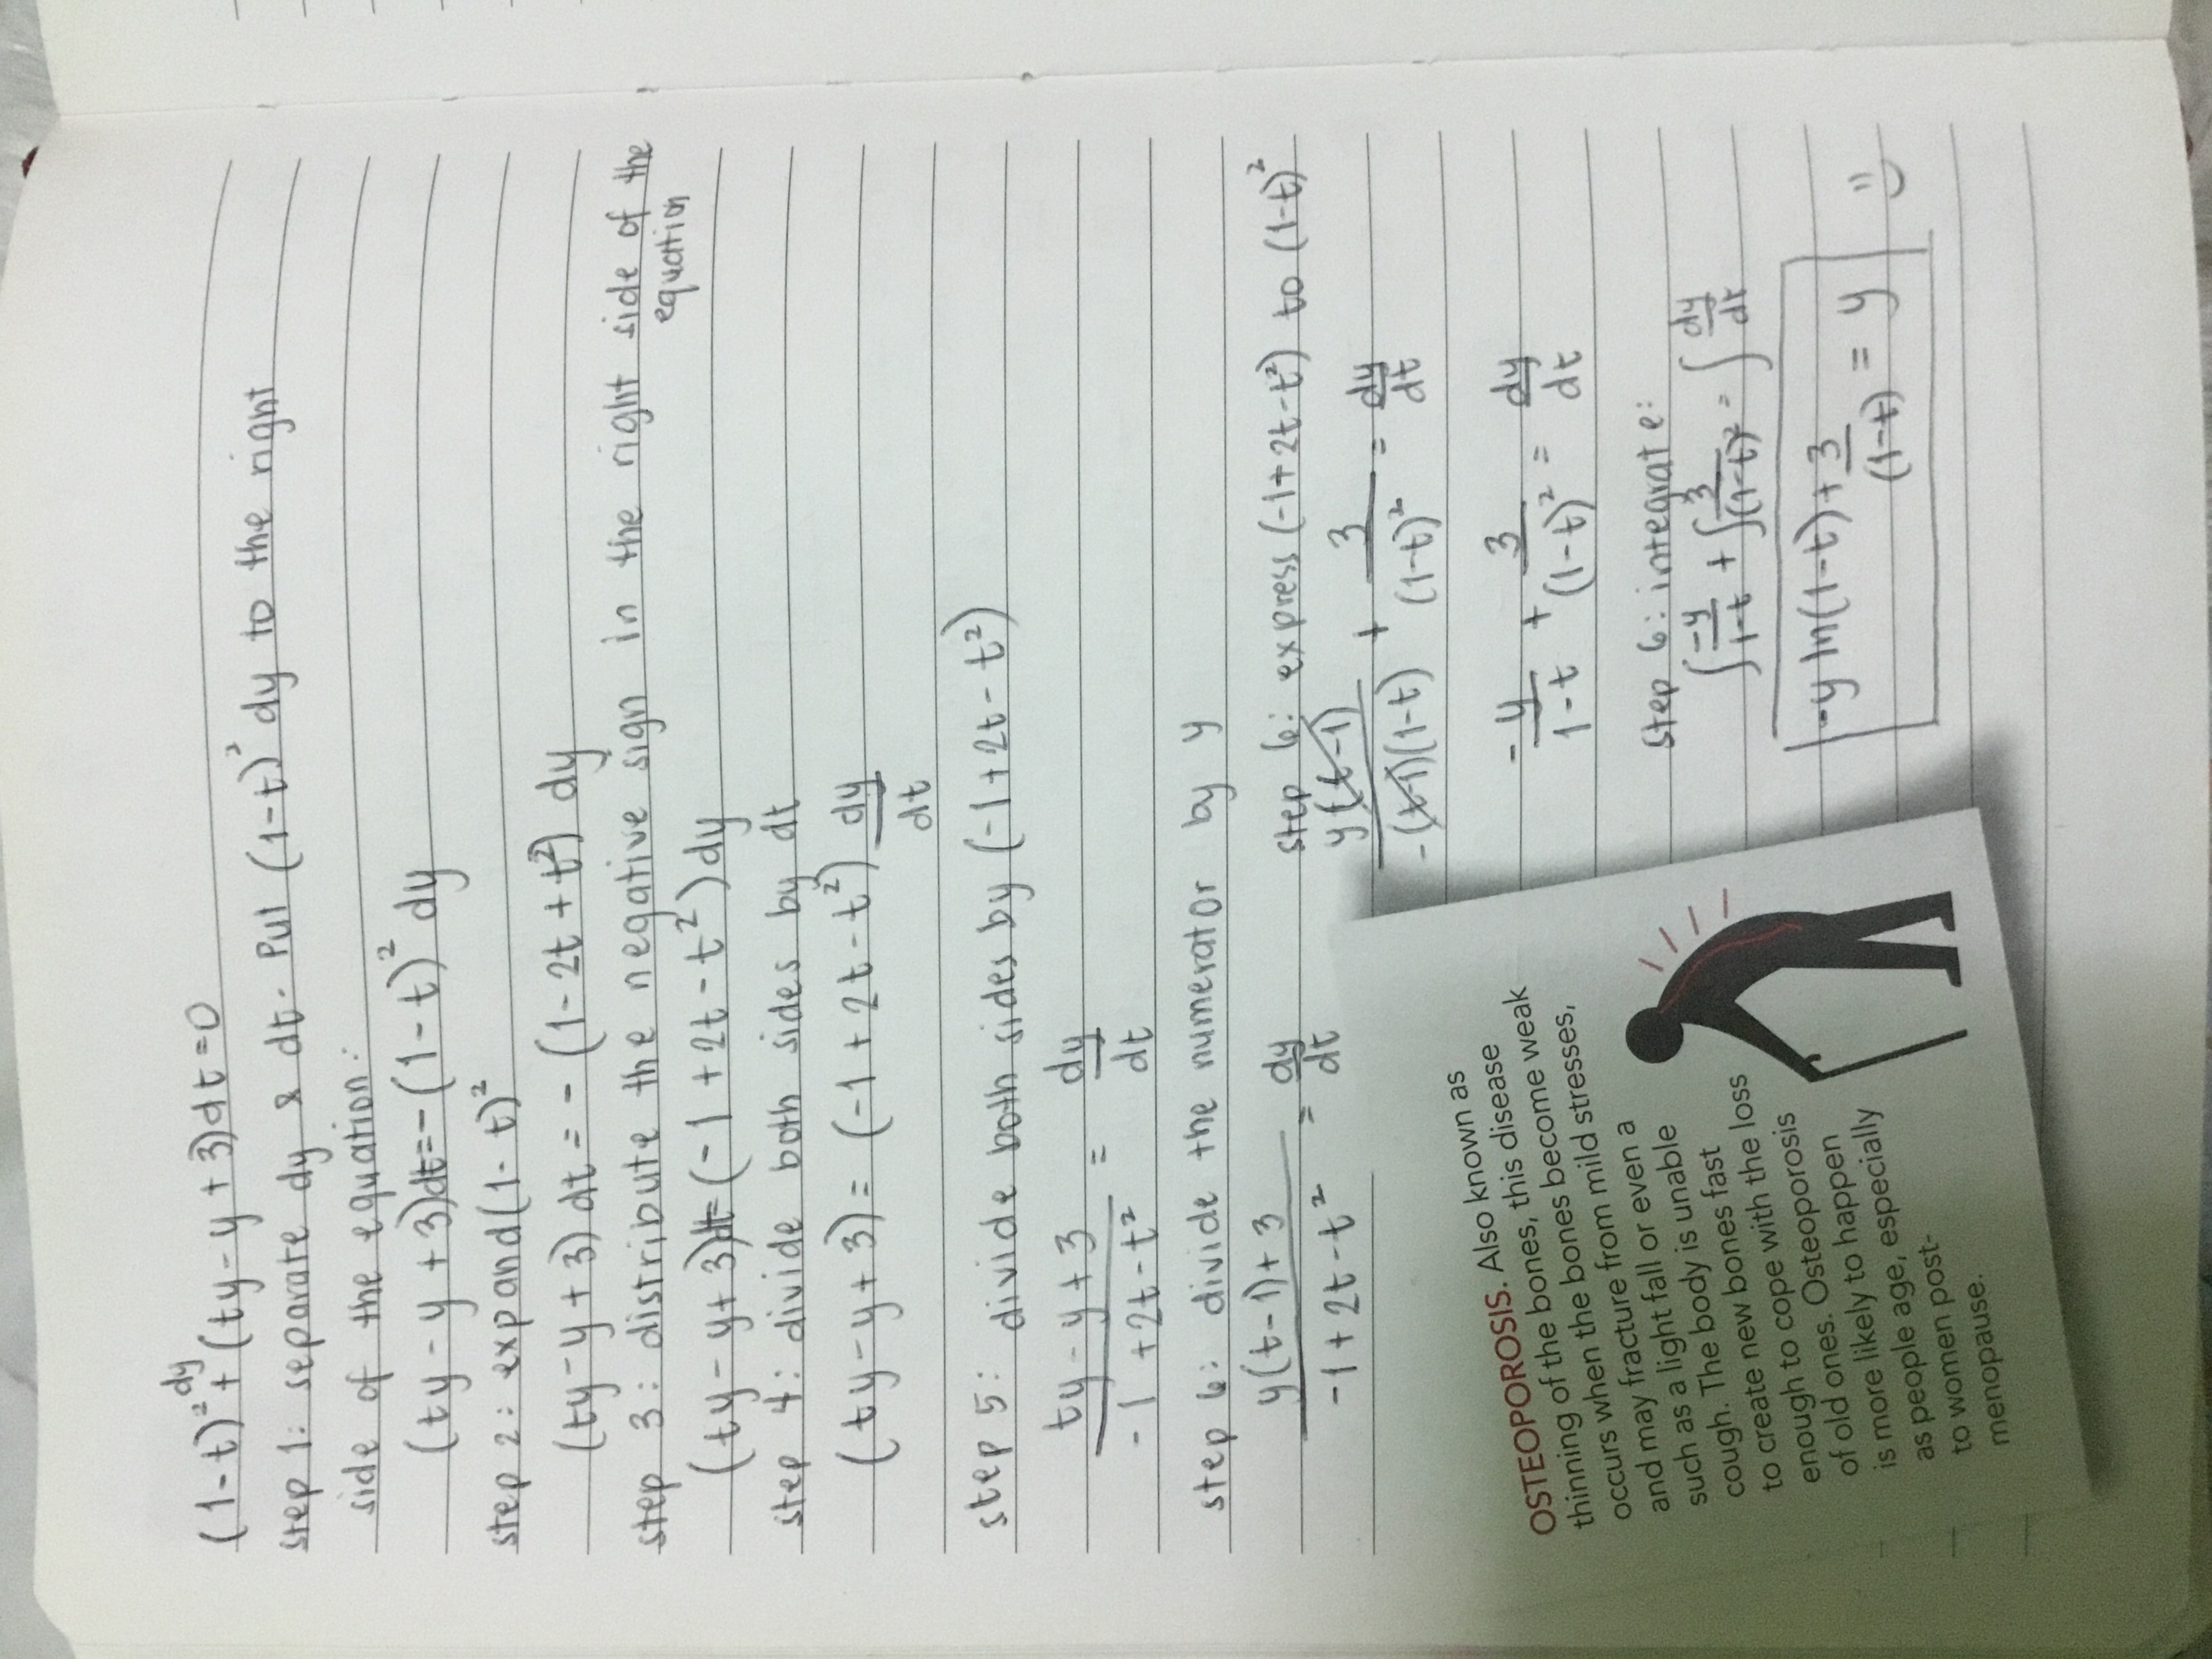 (1-t)² dy + (ty-y+3)dt=0
step 1: separate dy & dt. Put (1-t)² dy to the right
side of the equation:
(ty-y+3)dt=-(1-t)² dy
step 2: expand (1-t)²
(ty-y+3)dt = -(1-2t+t²) dy
step 3: distribute the negative sign in the right side of the
equation
(ty-y+3)dt=(-1+2t-t²)dy
step 4: divide both sides by dt
(ty-y+3)=(-1+2t-t²) dy/dt
step 5: divide both sides by (-1+2t-t²)
ty-y+3/-1+2t-t² = dy/dt
step 6: divide the numerator by y
y(t-1)+3/-1+2t-t² = dy/dt
step 6: express (-1+2t-t²) to (1-t)²
y(t-1)/-(t-1)(1-t) + 3/(1-t)² = dy/dt
-y/1-t + 3/(1-t)² = dy/dt
step 6: integrate:
∫ -y/1-t + ∫ 3/(1-t)² = ∫ dy/dt
-y ln(1-t)+ 3/(1-t) = y
OSTEOPOROSIS. Also known as
thinning of the bones, this disease
occurs when the bones become weak
and may fracture from mild stresses,
such as a light fall or even a
cough. The body is unable
to create new bones fast
enough to cope with the loss
of old ones. Osteoporosis
is more likely to happen
as people age, especially
to women post-
menopause.